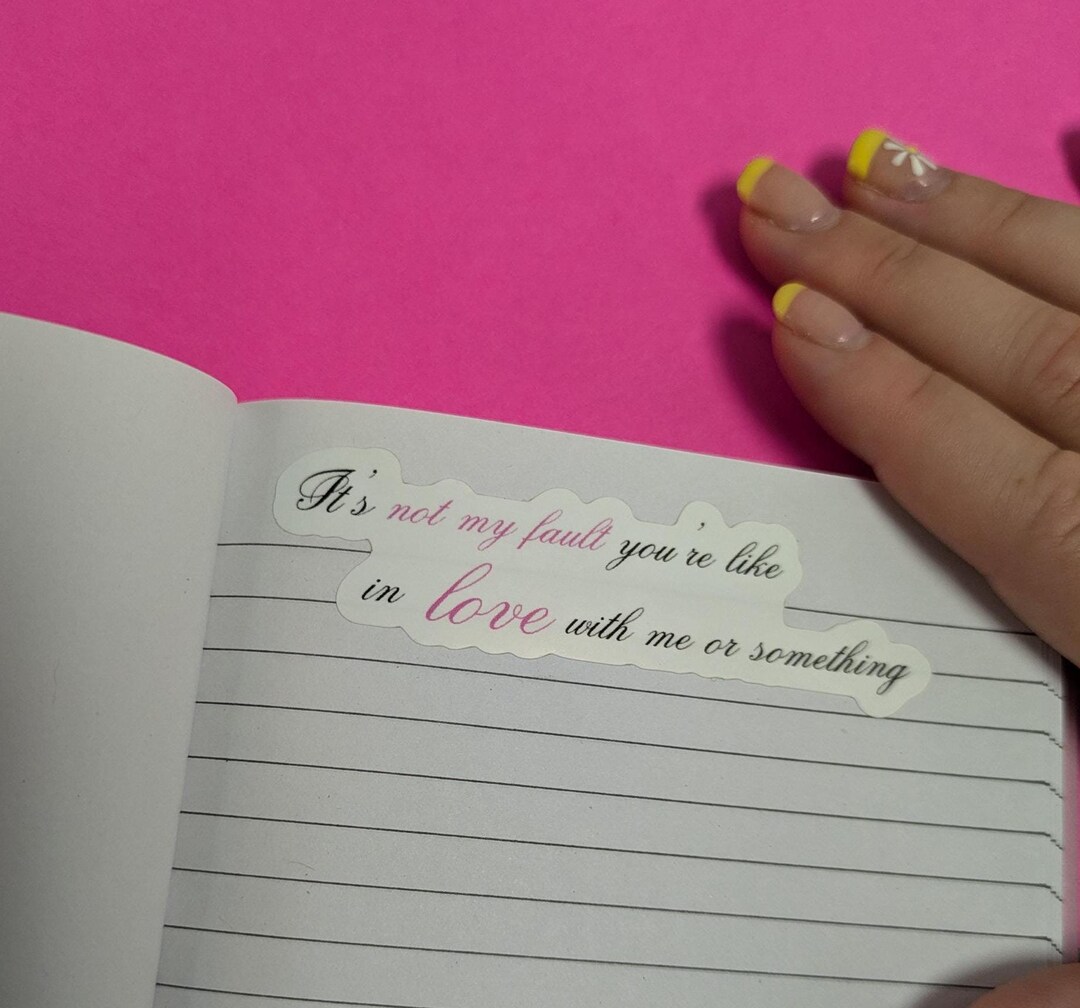 It's not my fault you're like
in love with me or something